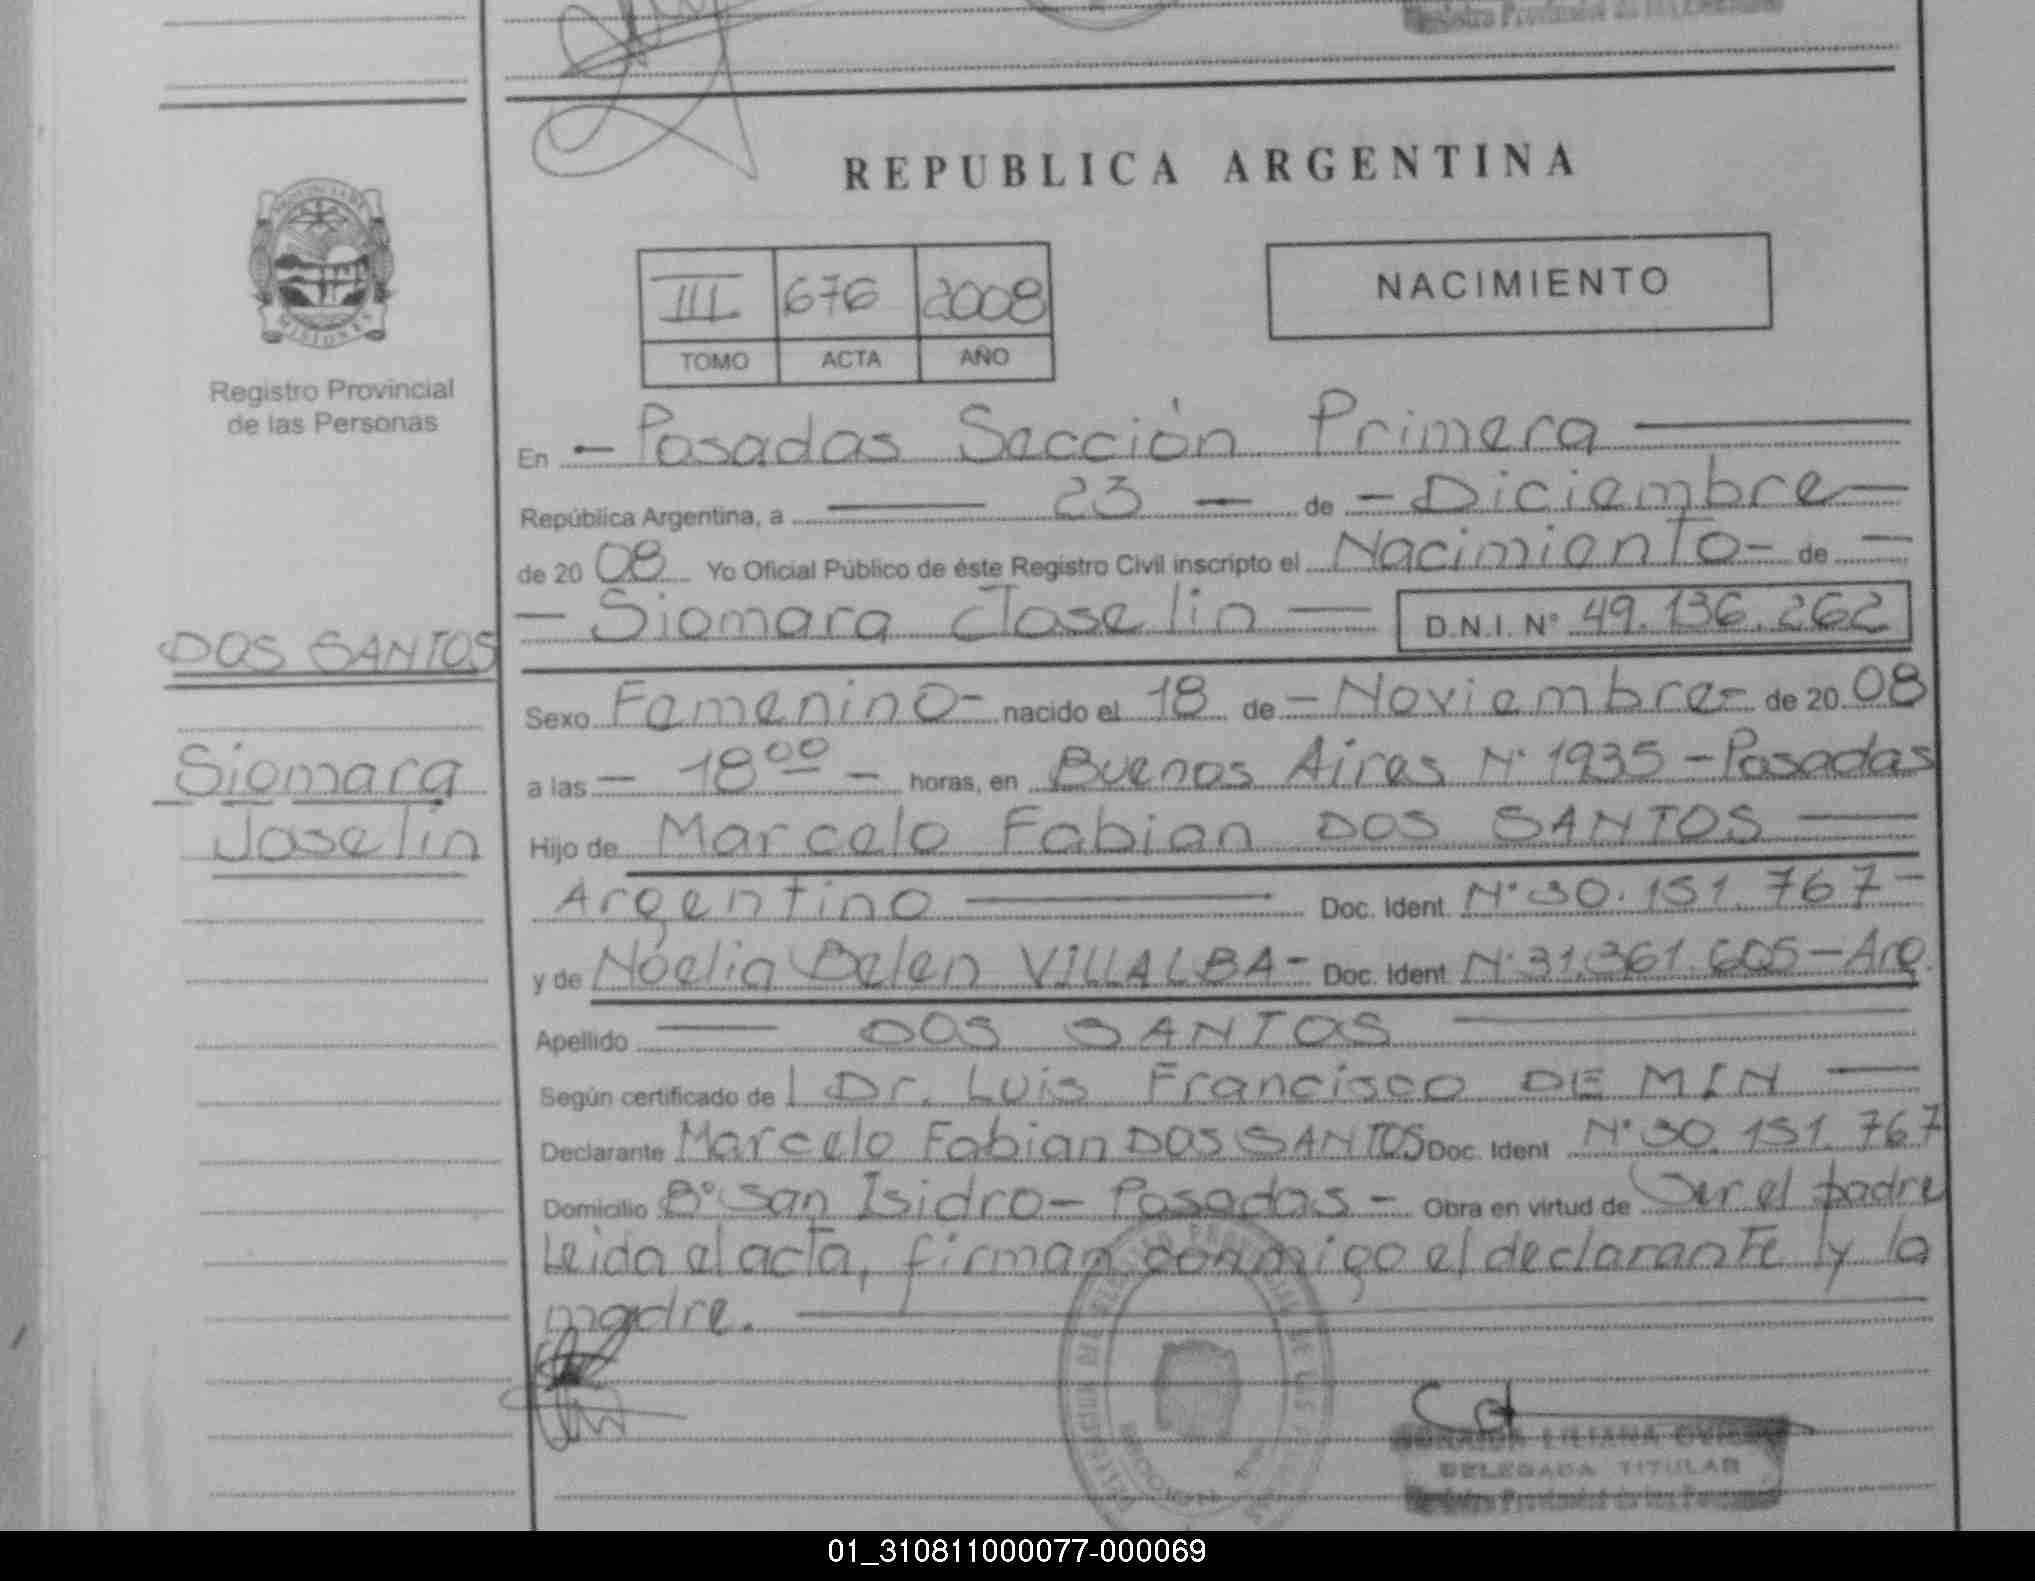 REPUBLICA ARGENTINA
NACIMIENTO
III 676 2008
TOMO ACTA AÑO
MISIONES
Registro Provincial
de las Personas
En - Posadas Sección Primera
República Argentina, a 23 - de - Diciembre -
de 20 08 Yo Oficial Público de éste Registro Civil inscripto el Nacimiento - de -
- Siomara Joselin - D.N.I. Nº 49.136.262
DOS SANTOS
Siomara
Joselin
Sexo Femenino - nacido el 18 de - Noviembre - de 20 08
a las - 18 00 - horas, en Buenos Aires Nº 1935 - Posadas
Hijo de Marcelo Fabian DOS SANTOS
Argentino Doc. Ident. Nº 30.151.767 -
y de Noelia Belen VILLALBA - Doc. Ident. Nº 31.361.605 - Arg.
Apellido DOS SANTOS
Según certificado de Dr. Luis Francisco DE MIN
Declarante Marcelo Fabian DOS SANTOS Doc. Ident Nº 30.151.767
Domicilio Bº San Isidro - Posadas - Obra en virtud de Ser el padre
Leida el acta, firman conmigo el declarante y la
madre.
LILIANA
DELEGADA TITULAR
Registro Provincial de las Personas
01_310811000077-000069